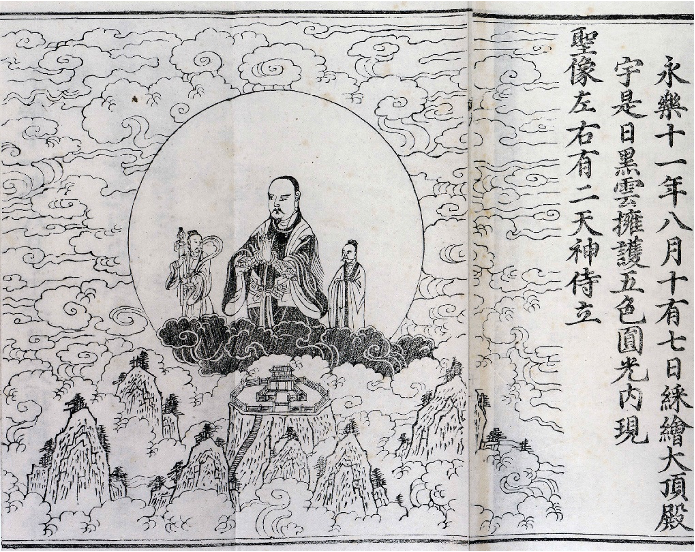 永樂十一年八月十有七日綵繪大頂殿
宇是日黑雲擁護五色圓光內現
聖像左右有二天神侍立